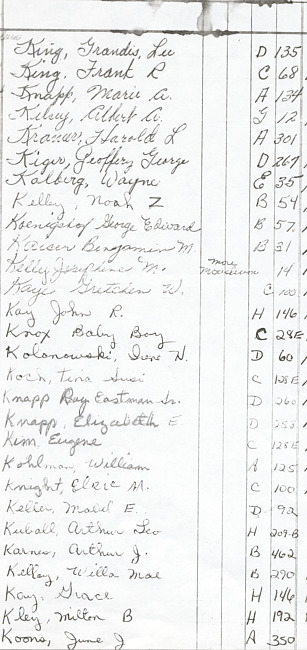 King, Grandis, Lee D 135
King, Frank R C 68
Knapp, Marie A. A 134
Kelsey, Albert A. G 12
Kramer, Harold L A 301
Kiger, Geoffery George D 267
Kalberg, Wayne E 35
Kelley Noah Z B 54
Koenigshof George Edward B 57
Kaiser Benjamin M. B 31
Kelly Josephine M. Mausoleum 14
Kaye Gretchen W. C 100
Kay John R. H 146
Knox Baby Boy C 28E
Kolanowski, Irene H. D 60
Koch, Tina Susi C 128E
Knapp Ray Eastman Sr. D 260
Knapp, Elizabeth E. D 258
Kim, Eugene C 128E
Kohlman, William A 125
Knight, Elric M. C 100
Keller, Mabel E. D 92
Kuball, Arthur Leo H 209-B
Karnes, Arthur J. B 462
Kelley, Willa Mae B 290
Kay, Grace H 146
Kley, Milton B H 192
Koons, June J A 350